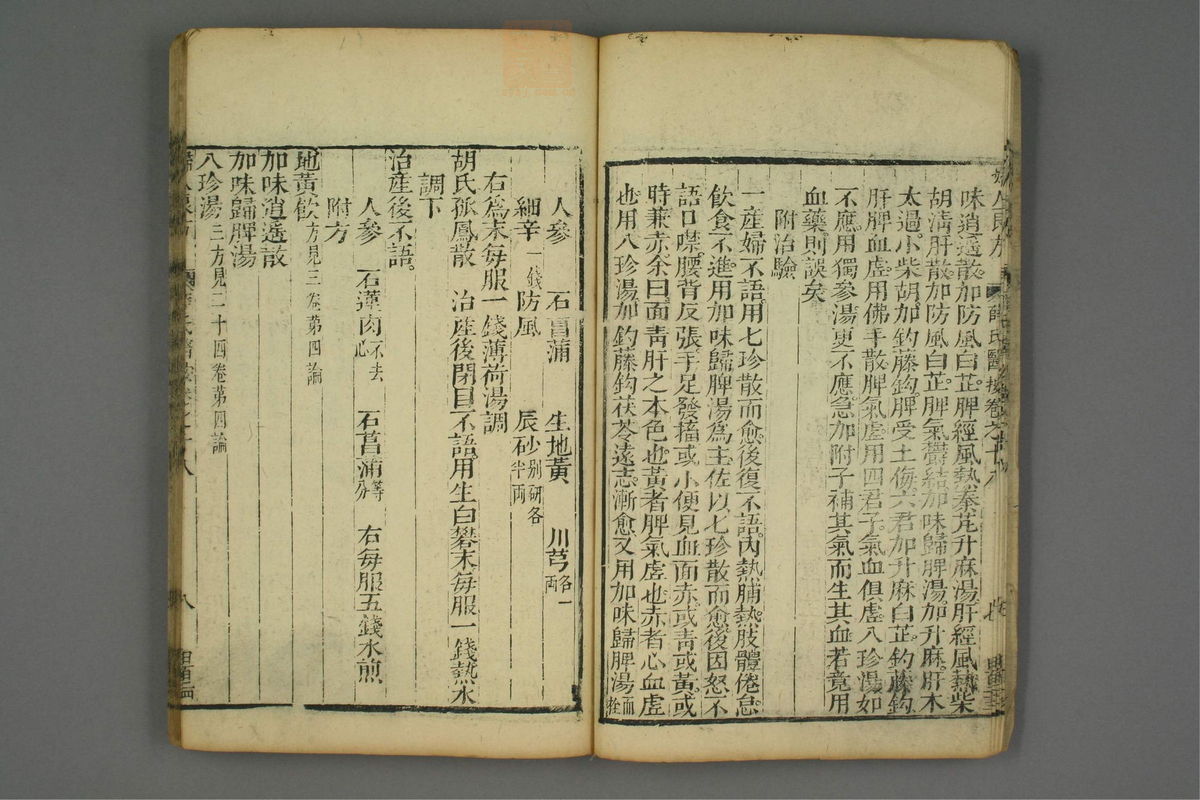 味逍遙散加防風白芷脾經風熱秦芃升麻湯肝經風熱柴
胡清肝散加防風白芷脾氣鬱結加味歸脾湯加升麻肝木
太過小柴胡加釣藤鈎脾受土侮六君加升麻白芷釣藤鈎
肝脾血虛用佛手散脾氣虛用四君子氣血俱虛八珍湯如
不應用獨參湯更不應急加附子補其氣而生其血若竟用
血藥則誤矣
附治驗
一產婦不語用七珍散而愈後復不語內熱脯熱肢體倦怠
飲食不進用加味歸脾湯為主佐以七珍散而愈後因怒不
語口噤腰背反張手足發搐或小便見血面赤或青或黃或
時兼赤余曰面青肝之本色也黃者脾氣虛也赤者心血虛
也用八珍湯加釣藤鈎茯苓遠志漸愈又用加味歸脾湯而
痊
人參 石菖蒲 生地黃 川芎各一兩
細辛一錢 防風 辰砂別研各半兩
右為末每服一錢薄荷湯調
胡氏孤鳳散 治產後閉目不語用生白礬末每服一錢熱水
調下
治產後不語
人參 石蓮肉不去心 石菖蒲等分 右每服五錢水煎
附方
地黃飲方見三卷第四論
加味逍遙散
加味歸脾湯
八珍湯三方見二十四卷第四論
婦人良方
八